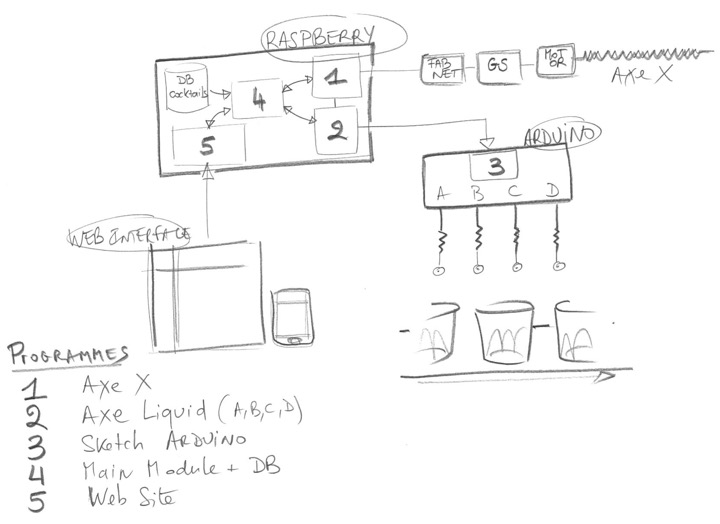 RASPBERRY
DB
Cocktails
4
1
2
5
FAB
NET
GS
MOT
OR
AXE X
ARDUINO
3
A B C D
WEB INTERFACE
PROGRAMMES
1 Axe X
2 Axe Liquid (A,B,C,D)
3 Sketch ARDUINO
4 Main Module + DB
5 Web Site